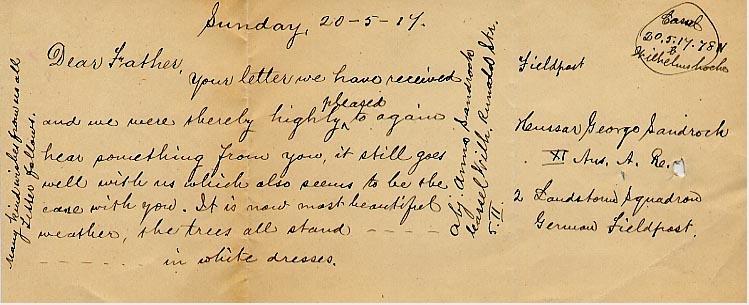 Sunday, 20-5-17.
Dear Father,
Your letter we have received
and we were thereby highly pleased to again
hear something from you, it still goes
well with us which also seems to be the
case with you. It is now most beautiful
weather, the trees all stand - - - - -
- - - - - - in white dresses.
Many kind wishes from us all
Letter follows.
Abj. Anna Sandrock
Cassel Wilh.
Str.
5. II.
Cassel
20.5.17. 78N
Wilhelmshoehe
Fieldpost
Hussar George Sandroch
XI
A. Re.
2 Landstorm Squadron
German Fieldpost.